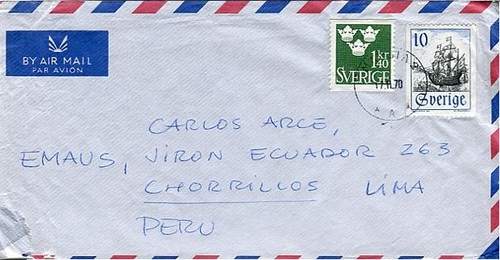 BY AIR MAIL
PAR AVION
1 kr 40
SVERIGE
10
Sverige
70
CARLOS ARCE,
EMAUS, JIRON ECUADOR 263
CHORRILLOS LIMA
PERU